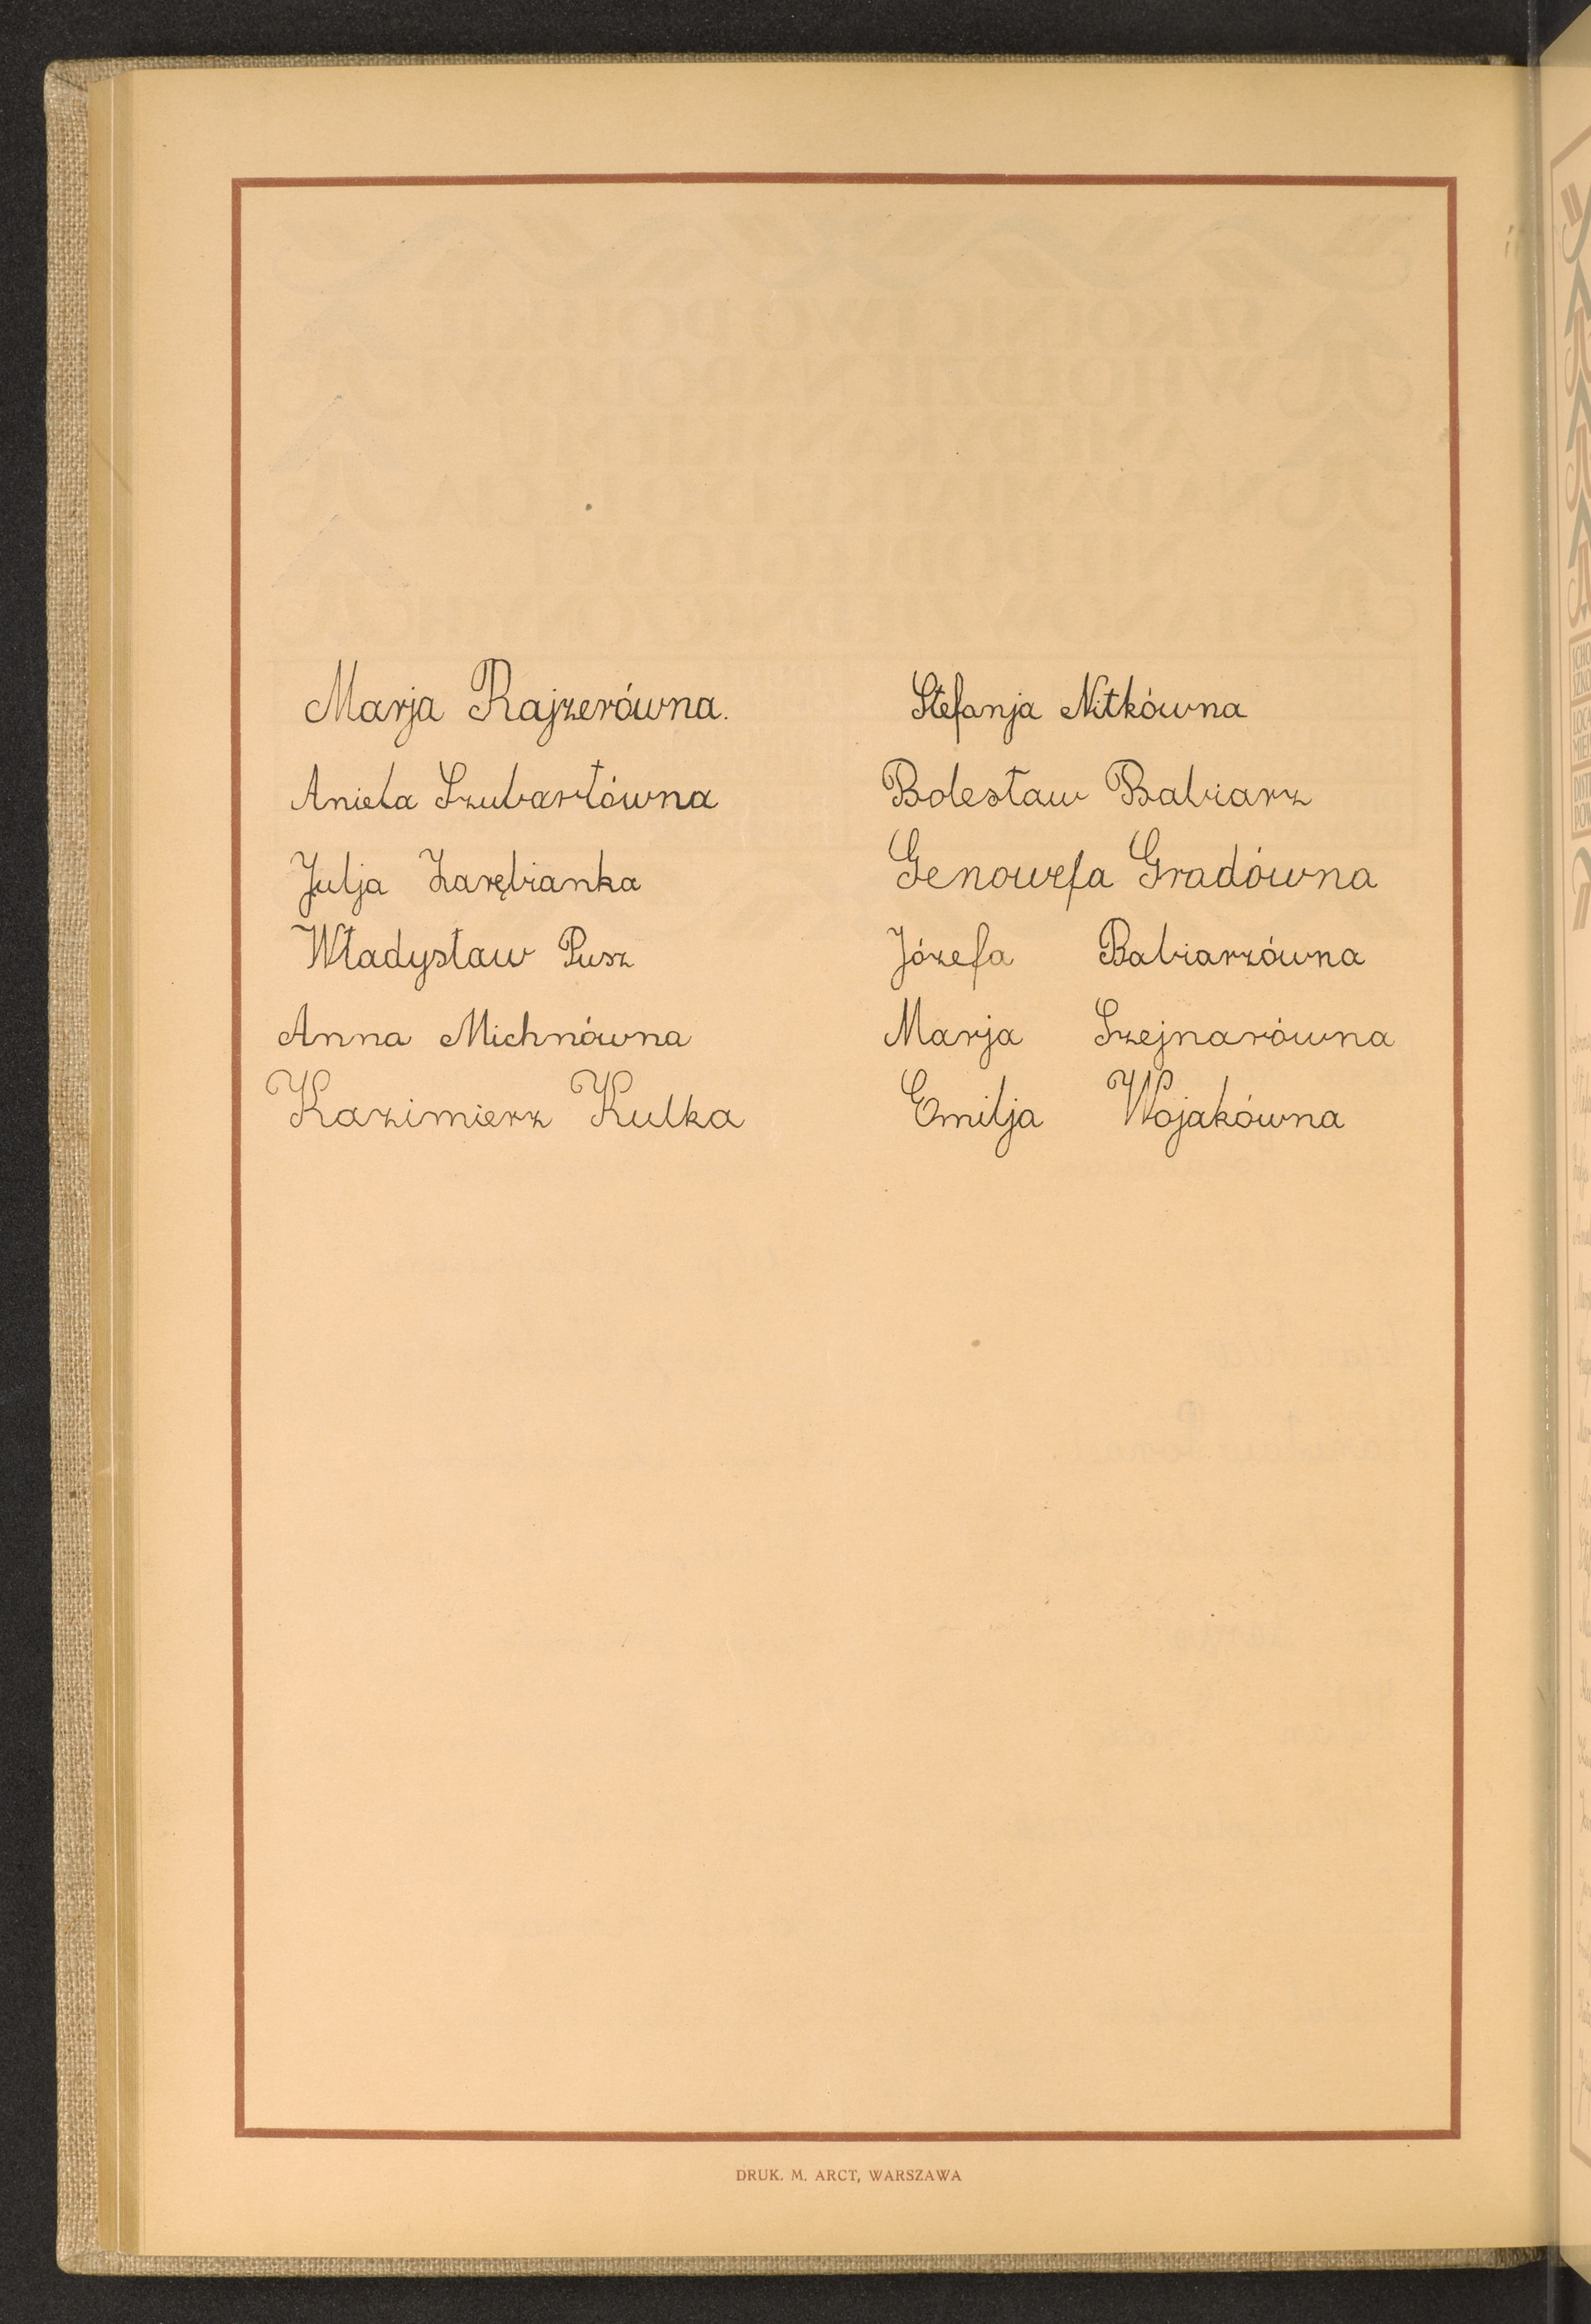 Marja Rajzerówna.
Aniela Szubartówna
Julja Zarębianka
Władysław Pusz
Anna Michnówna
Kazimierz Kulka
Stefanja Nitkówna
Bolesław Babiarz
Genowefa Gradówna
Józefa Babiarzówna
Marja Szejnarówna
Emilja Wojakówna
DRUK. M. ARCT, WARSZAWA